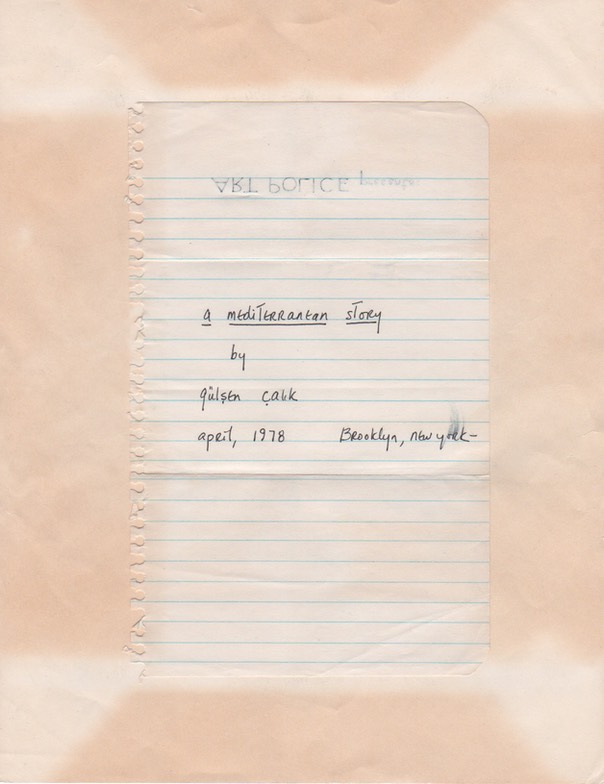 ART POLICE presents:
a mediterranean story
by
gülşen çalık
april, 1978 Brooklyn, new york-